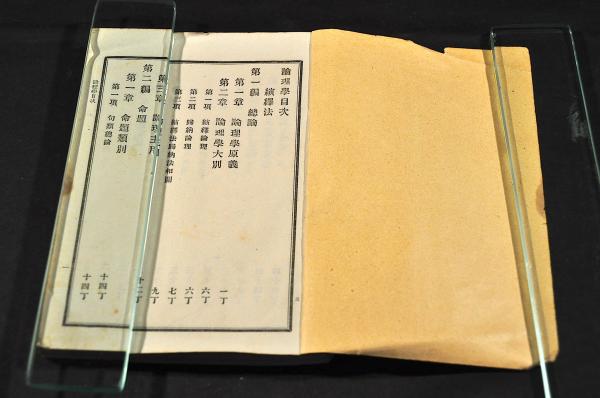 論理學目次
演繹法
第一編 總論
第一章 論理學原義 一丁
第二章 論理學大別 六丁
第一項 演繹論理 六丁
第二項 歸納論理 七丁
第三項 演繹法歸納法相關 九丁
第三章 論理 十二丁
第二編 命題
第一章 命題類別 十四丁
第一項 句類總論 十四丁
論理學目次
一